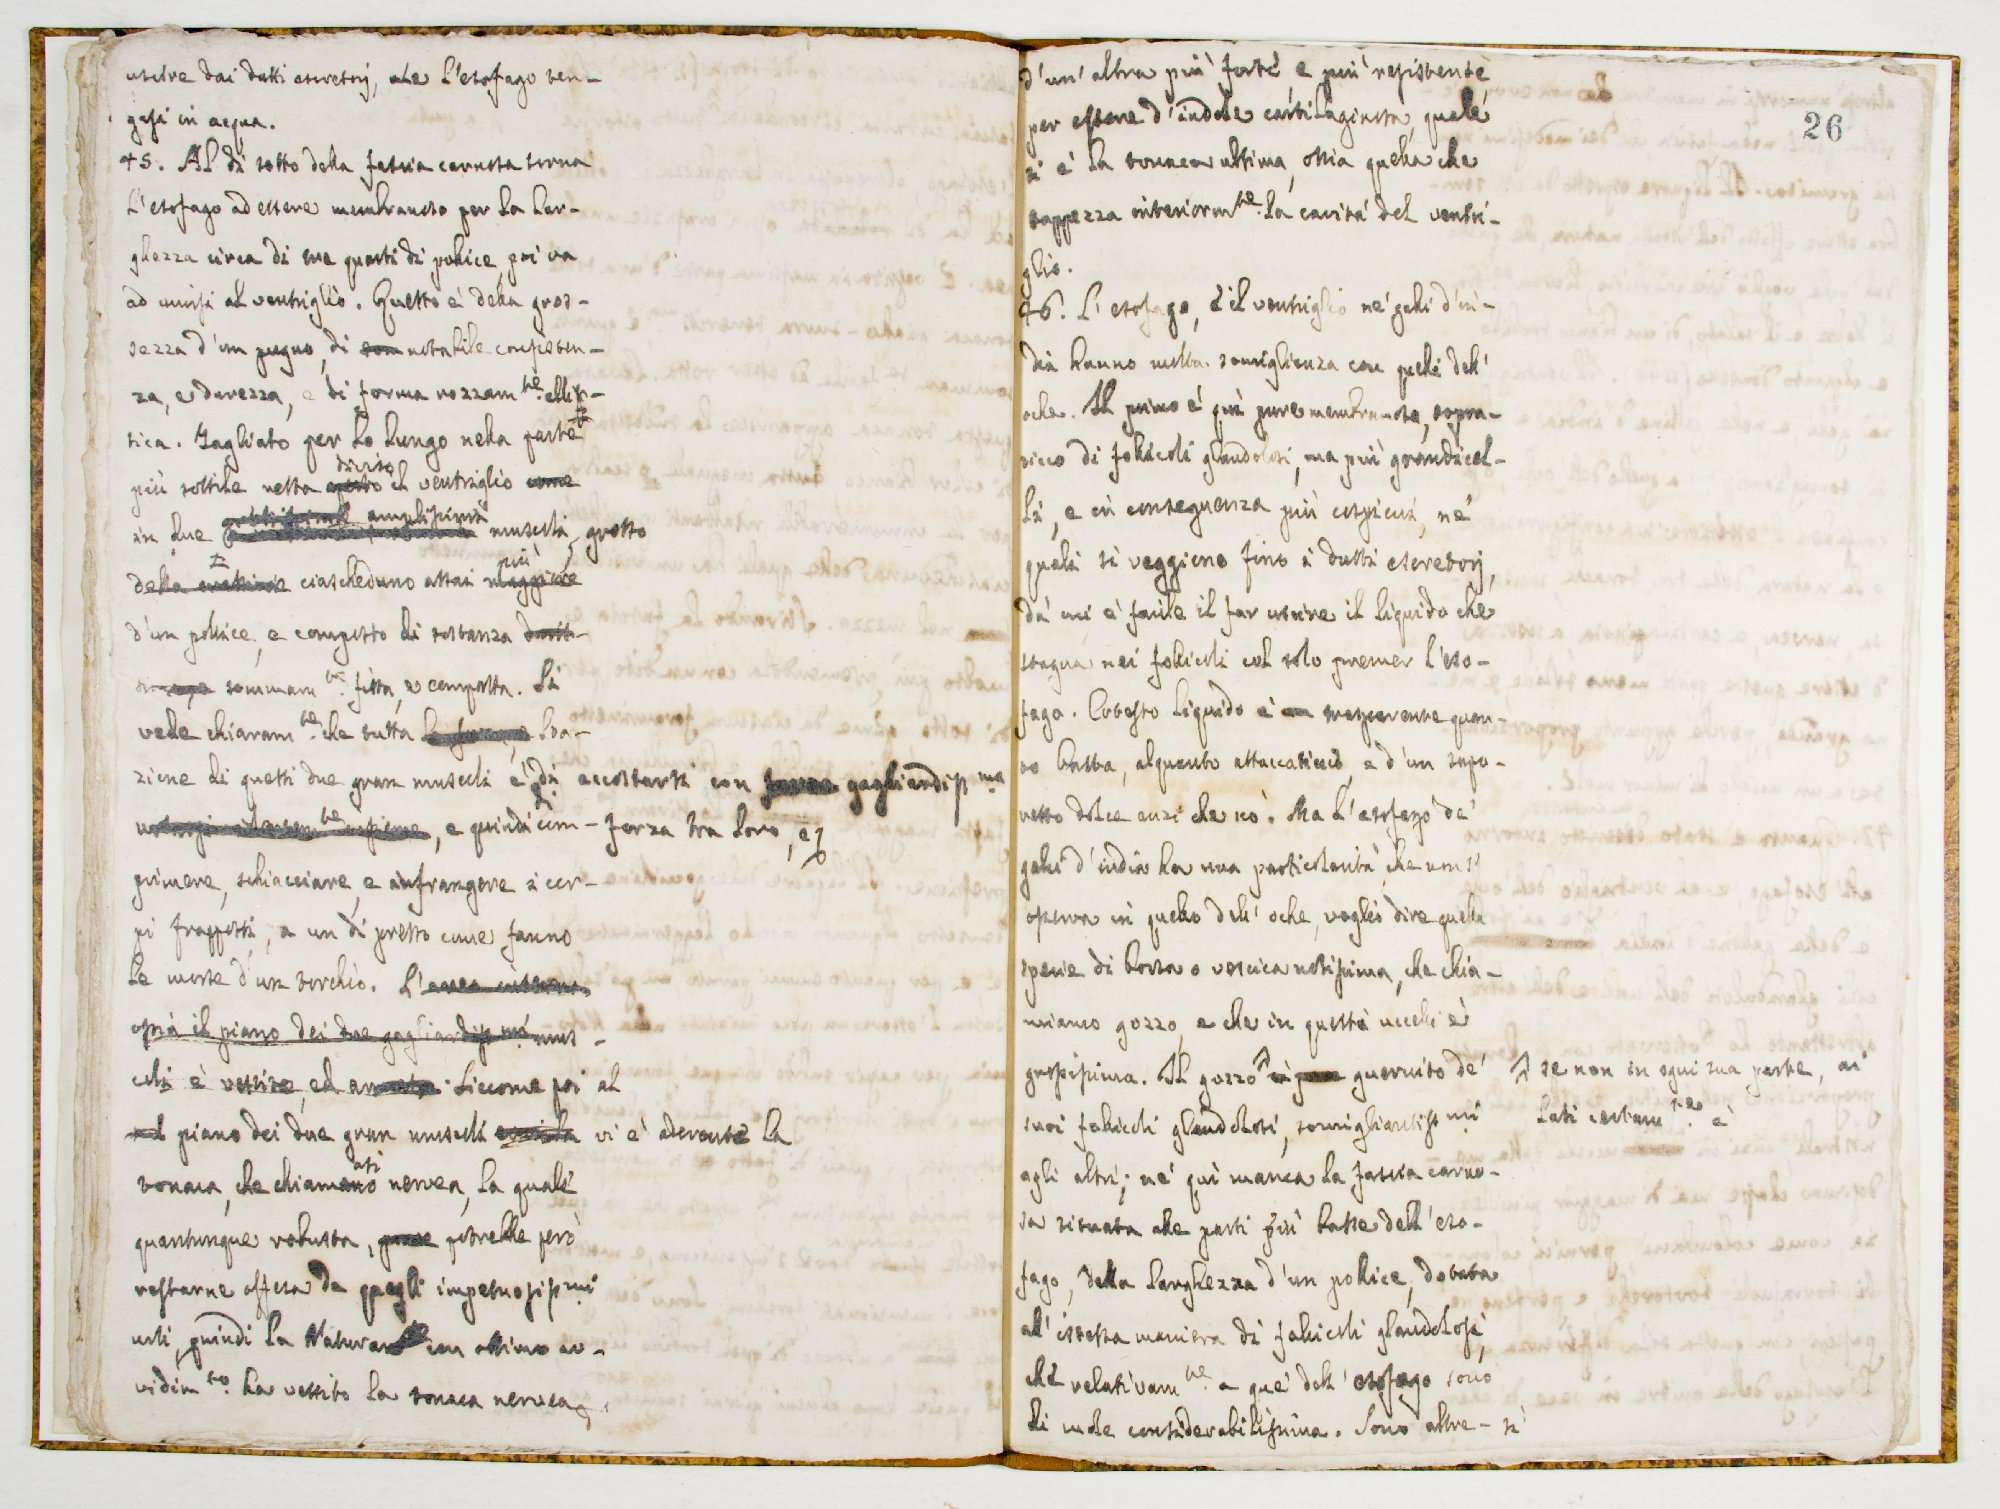 uscire dai dutti escretorj, che l'esofago ten-
gasi in acqua.
45. Al di sotto della fascia carnosa torna
l'esofago ad essere membranoso per la lar-
ghezza circa di tre quarti di pollice, poi va
ad unirsi al ventriglio. Questo è della gros-
sezza d'un pugno, di notabile consisten-
za, e durezza, e di forma rozzam.te ellit-
tica. Tagliato per lo lungo nella parte
più sottile resta diviso il ventriglio come
in due amplissimi muscoli, grosso
della ciascheduno assai più maggiore
d'un pollice, e composto di sostanza
sommam.te fitta, e compatta. Si
vede chiaram.te che tutta la
zione di questi due gran muscoli è di accostarsi con forza gagliardiss.ma
insieme, e quindi com- forza tra loro, e
primere, schiacciare, e infrangere i cor-
pi frapposti, a un di presso come fanno
le morse d'un torchio. L'
ossia il piano dei due gagliardiss.mi mus-
coli è vestito, ed Siccome poi al
piano dei due gran muscoli vi è aderente la
tonaca, che chiamano asi nervea, la quale
quantunque robusta, potrebbe però
restarne offesa da quegli impetuosiss.mi
urti, quindi la Natura con ottimo av-
vedim.to ha vestito la tonaca nervea
26
d'un' altra più forte e più resistente
per essere d'indole cartilaginosa, quale
si è la tonaca ultima, ossia quella che
tappezza interiorm.te la cavità del ventri-
glio.
46. L'esofago, e il ventriglio ne' galli d'In-
dia hanno molta somiglianza con quelli dell'
oche. Il primo è qui pure membranoso, sopra-
ricco di follicoli glandolosi, ma più grandicel-
li, e in conseguenza più cospicui, ne'
quali si veggiono fino i dutti escretorj,
da' cui è facile il far uscire il liquido che
stagna nei follicoli col solo premer l'eso-
fago. Cotesto liquido è trasparente quan-
to basta, alquanto attaccaticcio, e d'un sapo-
retto dolce anzi che nò. Ma l'esofago de'
galli d'india ha una particolarità, che non s'
osserva in quello dell' oche, voglio dire quella
specie di borsa o vescica notissima, che chia-
miamo gozzo, e che in questi uccelli è
grossissima. Il gozzo guernito de' se non in ogni sua parte, ai
suoi follicoli glandolosi, somigliantiss.mi lati certam.te è
agli altri; nè qui manca la fascia carno-
sa situata alle parti più basse dell' eso-
fago, della larghezza d'un pollice, dotata
all' istessa maniera di follicoli glandolosi,
che relativam.te a que' dell' esofago sono
di mole considerabilissima. Sono altre- sì